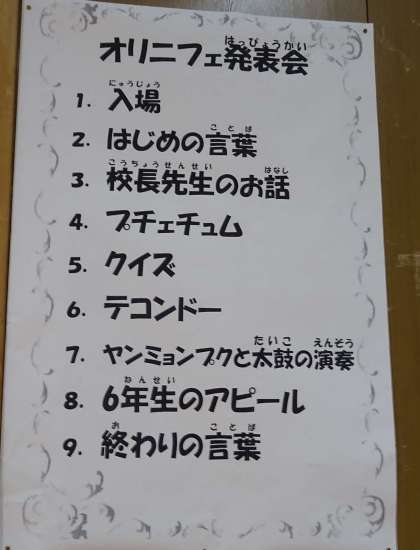 はっぴょうかい
オリニフェ発表会
にゅうじょう
1. 入場
ことば
2. はじめの言葉
こうちょうせんせい はなし
3. 校長先生のお話
4. プチェチュム
5. クイズ
6. テコンドー
たいこ えんそう
7. ヤンミョンプクと太鼓の演奏
ねんせい
8. 6年生のアピール
お ことば
9. 終わりの言葉